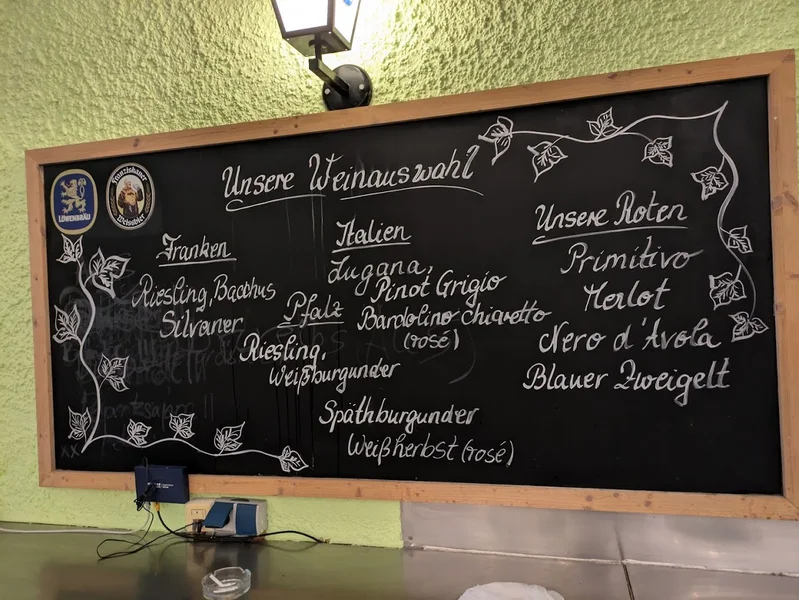 LÖWENBRÄU
Franziskaner
Weissbier
Unsere Weinauswahl
Franken
Riesling, Bacchus
Silvaner
Pfalz
Riesling,
Weißburgunder
Italien
Lugana,
Pinot Grigio
Bardolino Chiaretto
(rosé)
Späthburgunder
Weißherbst (rosé)
Unsere Roten
Primitivo
Merlot
Nero d'Avola
Blauer Zweigelt